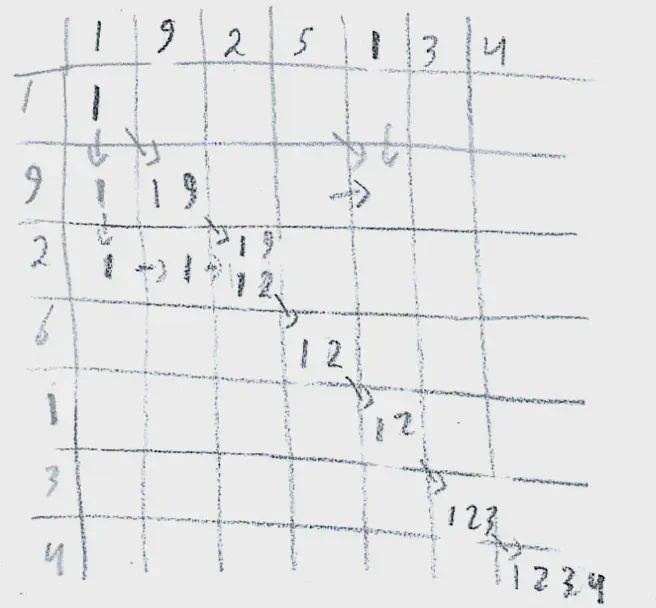 1 9 2 5 1 3 4
1 1
9 1 1 9
1 9
2 1 → 1 → 1 2
1 2
1 1 2
3
1 2 3
4 1 2 3 4